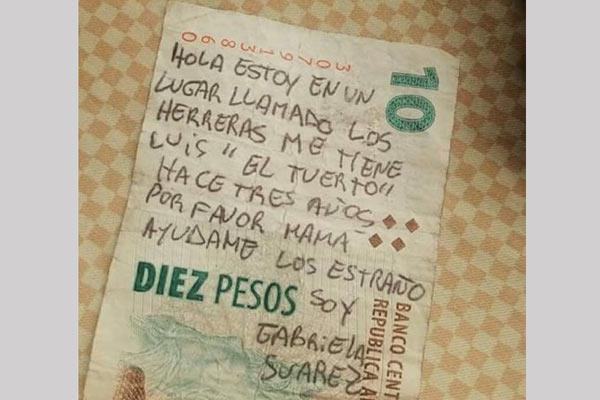 10
30791386
HOLA ESTOY EN UN
LUGAR LLAMADO LOS
HERRERAS ME TIENE
LUIS "EL TUERTO"
HACE TRES AÑOS
POR FAVOR MAMA
AYUDAME LOS ESTRAÑO
DIEZ PESOS SOY
GABRIELA
SUAREZ
BANCO CENT
REPUBLICA A